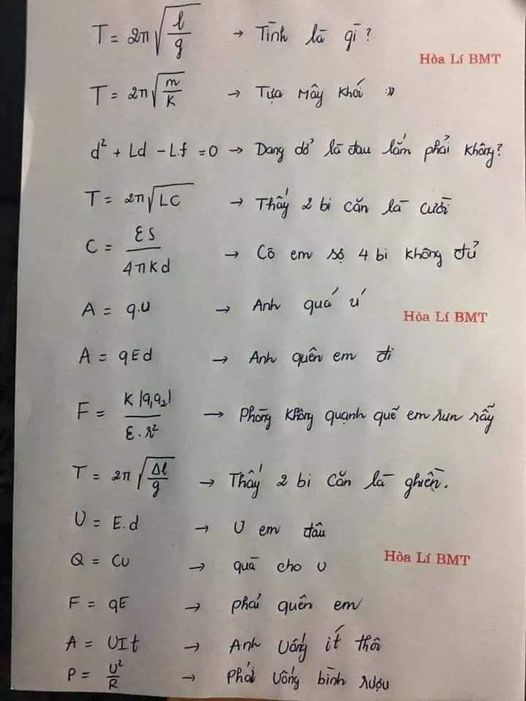 T = 2π√(l/g) → Tình là gì?
Hòa Lí BMT
T = 2π√(m/K) → Tựa mây khói »
d² + Ld - L.f = 0 → Dang dở là đau lắm phải không?
T = 2π√LC → Thấy 2 bi căn là cười
C = ES/4πKd → Cô em sợ 4 bi không đủ
A = q.U → Anh quá ú
Hòa Lí BMT
A = qEd → Anh quên em đi
F = K|q₁q₂|/ε.r² → Phòng không quạnh quẽ em run rẫy
T = 2π√(Δl/g) → Thấy 2 bi căn là ghiền.
U = E.d → U em đâu
Q = CU → quà cho U
Hòa Lí BMT
F = qE → phải quên em
A = UIt → Anh Uống ít thôi
P = U²/R → Phải Uống bình rượu